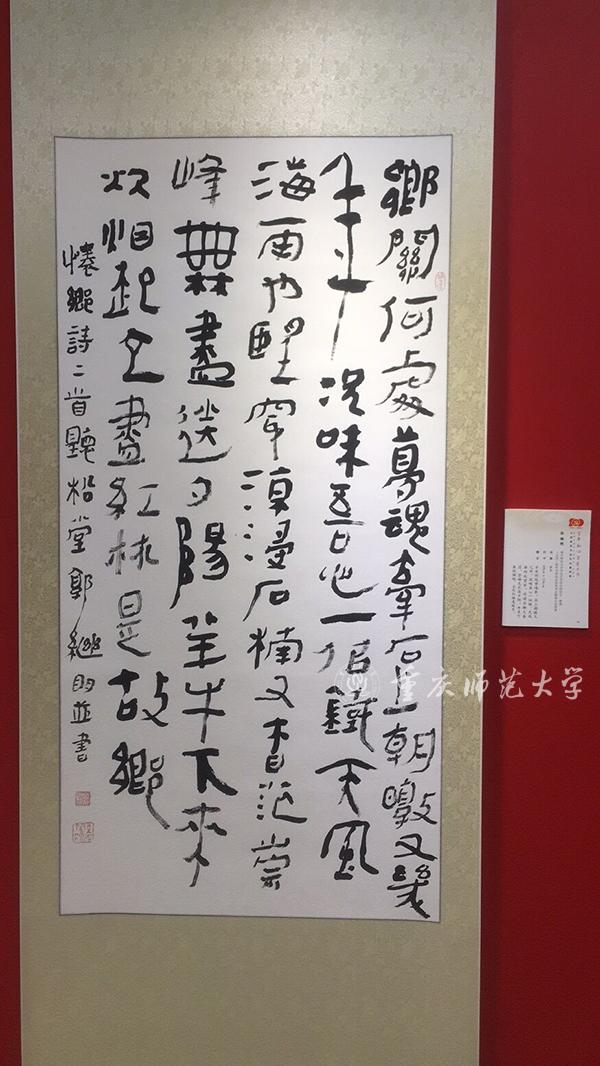 鄉關何處夢魂牽石上朝暾又幾
年況味吾心一鐵天風
海雨也穿漫石楠又杳茫崇
峰無盡送夕陽羊牛下來
炊烟起立盡紅林是故鄉
惓鄉詩二首聽松堂鄭繼明並書
重庆师范大学